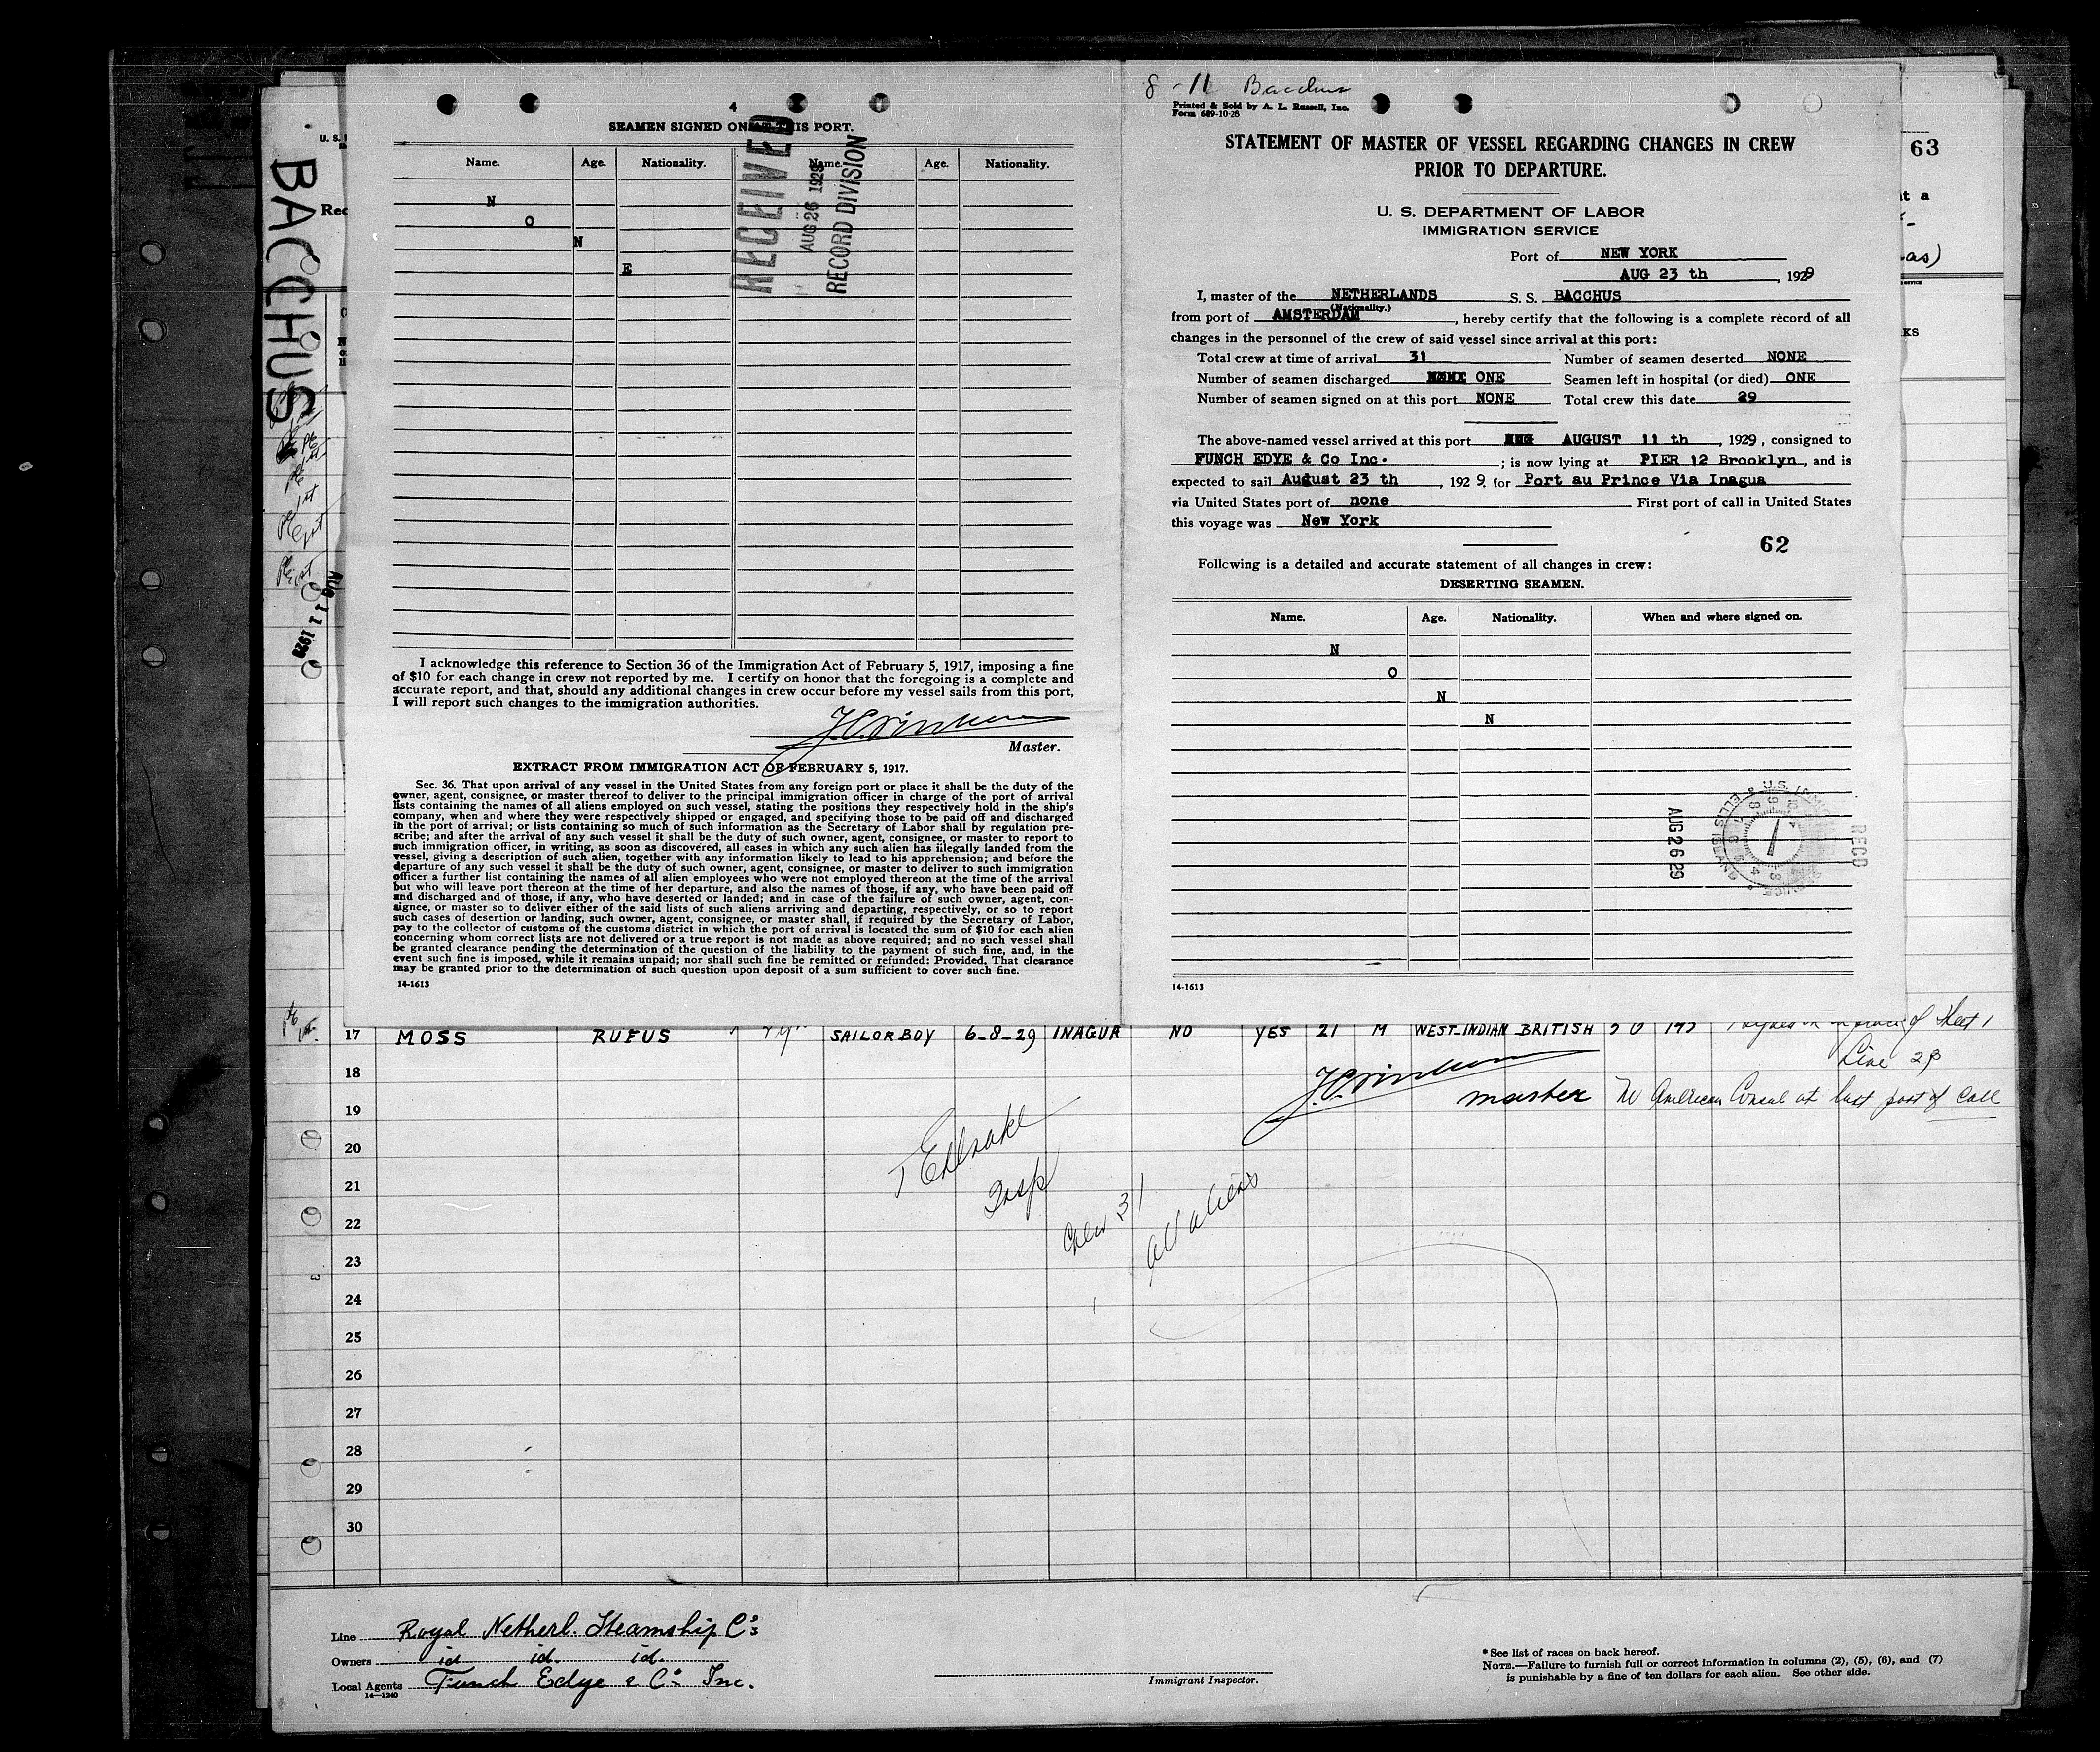 BACCHUS
AUG 11 1929
4
SEAMEN SIGNED ON AT THIS PORT.
Name. Age. Nationality. Name. Age. Nationality.
N
O
N
E
RECEIVED
AUG 26 1929
RECORD DIVISION
I acknowledge this reference to Section 36 of the Immigration Act of February 5, 1917, imposing a fine
of $10 for each change in crew not reported by me. I certify on honor that the foregoing is a complete and
accurate report, and that, should any additional changes in crew occur before my vessel sails from this port,
I will report such changes to the immigration authorities.
Master.
EXTRACT FROM IMMIGRATION ACT OF FEBRUARY 5, 1917.
Sec. 36. That upon arrival of any vessel in the United States from any foreign port or place it shall be the duty of the
owner, agent, consignee, or master thereof to deliver to the principal immigration officer in charge of the port of arrival
lists containing the names of all aliens employed on such vessel, stating the positions they respectively hold in the ship's
company, when and where they were respectively shipped or engaged, and specifying those to be paid off and discharged
in the port of arrival; or lists containing so much of such information as the Secretary of Labor shall by regulation pre-
scribe; and after the arrival of any such vessel it shall be the duty of such owner, agent, consignee, or master to report to
such immigration officer, in writing, as soon as discovered, all cases in which any such alien has illegally landed from the
vessel, giving a description of such alien, together with any information likely to lead to his apprehension; and before the
departure of any such vessel it shall be the duty of such owner, agent, consignee, or master to deliver to such immigration
officer a further list containing the names of all alien employees who were not employed thereon at the time of the arrival
but who will leave port thereon at the time of her departure, and also the names of those, if any, who have been paid off
and discharged and of those, if any, who have deserted or landed; and in case of the failure of such owner, agent, con-
signee, or master so to deliver either of the said lists of such aliens arriving and departing, respectively, or so to report
such cases of desertion or landing, such owner, agent, consignee, or master shall, if required by the Secretary of Labor,
pay to the collector of customs of the customs district in which the port of arrival is located the sum of $10 for each alien
concerning whom correct lists are not delivered or a true report is not made as above required; and no such vessel shall
be granted clearance pending the determination of the question of the liability to the payment of such fine, and, in the
event such fine is imposed, while it remains unpaid; nor shall such fine be remitted or refunded: Provided, That clearance
may be granted prior to the determination of such question upon deposit of a sum sufficient to cover such fine.
14-1613
8 - 11 Bacchus
Printed & Sold by A. L. Russell, Inc.
Form 689-10-28
STATEMENT OF MASTER OF VESSEL REGARDING CHANGES IN CREW
PRIOR TO DEPARTURE.
U. S. DEPARTMENT OF LABOR
IMMIGRATION SERVICE
Port of NEW YORK
AUG 23 th, 1929
I, master of the NETHERLANDS S. S. BACCHUS
(Nationality.)
from port of AMSTERDAM, hereby certify that the following is a complete record of all
changes in the personnel of the crew of said vessel since arrival at this port:
Total crew at time of arrival 31 Number of seamen deserted NONE
Number of seamen discharged ONE Seamen left in hospital (or died) ONE
Number of seamen signed on at this port NONE Total crew this date 29
The above-named vessel arrived at this port AUGUST 11 th, 1929, consigned to
FUNCH EDYE & Co Inc. ; is now lying at PIER 12 Brooklyn, and is
expected to sail August 23 th, 192 9. for Port au Prince Via Inagua
via United States port of none First port of call in United States
this voyage was New York
62
Following is a detailed and accurate statement of all changes in crew:
DESERTING SEAMEN.
Name. Age. Nationality. When and where signed on.
N
O
N
N
AUG 26 29
RECD
14-1613
63
17 MOSS RUFUS SAILORBOY 6-8-29 INAGUA NO YES 21 M WEST-INDIAN BRITISH of Sheet 1
18 Line 28
19 master No American Consul at last port of call
20
21 Insp
22 Crew 31 all aliens
23
24
25
26
27
28
29
30
Line Royal Netherl. Steamship Co
Owners id id. id.
Local Agents Funch Edye & Co Inc.
14-1240
Immigrant Inspector.
* See list of races on back hereof.
NOTE.—Failure to furnish full or correct information in columns (2), (5), (6), and (7)
is punishable by a fine of ten dollars for each alien. See other side.